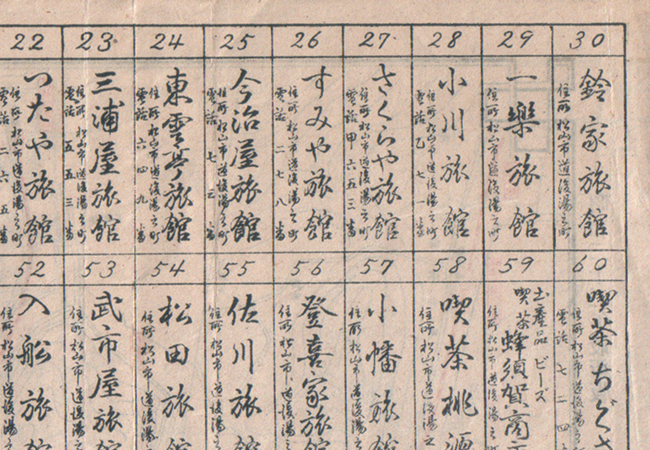 22
つたや旅館
住所 松山市道後湯之町
電話 二六五番
23
三浦屋旅館
住所 松山市道後湯之町
電話 五五三番
24
東雲亭旅館
住所 松山市道後湯之町
電話 六四九番
25
今治屋旅館
住所 松山市道後湯之町
電話 七 番
26
すみや旅館
住所 松山市道後湯之町
電話 二七八番
27
さくらや旅館
住所 松山市道後湯之町
電話甲六五三番
28
小川旅館
住所 松山市道後湯之町
電話乙七一番
29
一樂旅館
住所 松山市道後湯之町
30
鈴家旅館
住所 松山市道後湯之町
52
入船旅館
住所 松山市道後湯
53
武市屋旅館
住所 松山市道後湯
54
松田旅館
住所 松山市道後湯
55
佐川旅館
住所 松山市道後湯之
56
登喜家旅館
住所 松山市道後湯
57
小幡旅館
住所 松山市道後湯之
58
喫茶桃源
住所 松山市道後湯之
59
土産品 ビーズ
喫茶 蜂須賀商
住所 松山市道後湯
60
喫茶ちぐさ
住所 松山市道後湯之
電話 七二四